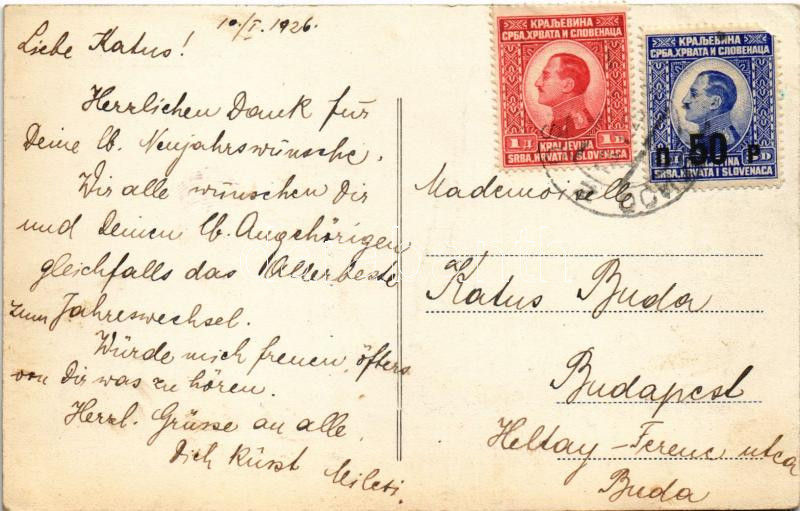 10/I. 1926.
Liebe Katus!
Herrlichen Dank für
Deine lb. Neujahrswünsche.
Wir alle wünschen Dir
und Deinen lb. Angehörigen
gleichfalls das Allerbeste
zum Jahreswechsel.
Würde mich freuen, öfters
von Dir was zu hören.
Herzl. Grüsse an alle.
Dich küsst
КРАЉЕВИНА
СРБА, ХРВАТА И СЛОВЕНАЦА
1 Д 1 D
KRALJEVINA
SRBA, HRVATA I SLOVENACA
КРАЉЕВИНА
СРБА, ХРВАТА И СЛОВЕНАЦА
П 50 P
SRBA, HRVATA I SLOVENACA
Mademoiselle
Katus Buda
Budapest
Heltay-Ferenc utca
Buda